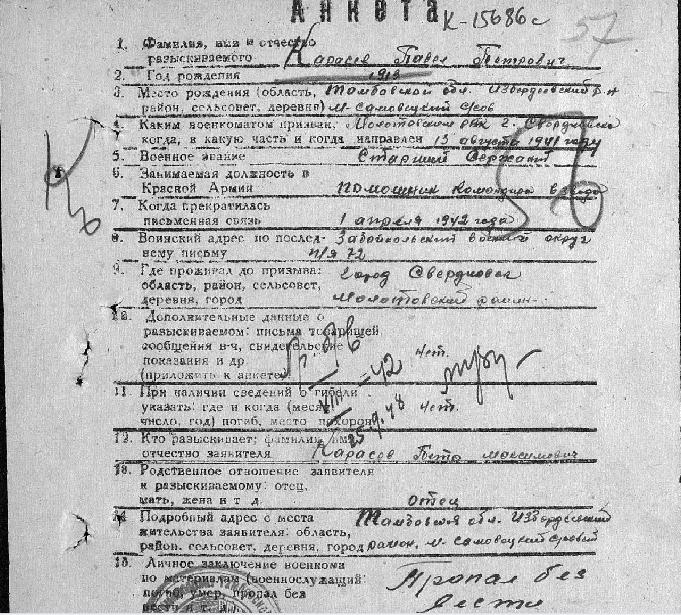 Анкета К-15686с
57
1. Фамилия, имя и отчество
разыскиваемого Карасев Павел Петрович
2. Год рождения 1918
3. Место рождения (область, Тамбовской обл. Избердеевский р-н
район, сельсовет, деревня)
4. Каким военкоматом призван, Молотовским РВК г. Свердловска
когда, в какую часть и когда направлен 15 августа 1941 году
5. Военное звание Старший Сержант
6. Занимаемая должность в
Красной Армии помошник командира взвода
7. Когда прекратилась
письменная связь 1 апреля 1942 года
8. Воинский адрес по послед- Забайкольский военной округ
нему письму п/я 72
9. Где проживал до призыва: город Свердловск
область, район, сельсовет,
деревня, город Молотовский район
10. Дополнительные данные о
разыскиваемом: письма товарищей
сообщения в-ч, свидетельские
показания и др. нет.
(приложить к анкете)
42
11. При наличии сведений о гибели
указать: где и когда (месяц нет.
число, год) погиб, место похорон
12. Кто разыскивает: фамилия, имя
отчество заявителя Карасев Петр Максимович
13. Родственное отношение заявителя
к разыскиваемому: отец,
мать, жена и т д отец
14. Подробный адрес с места Тамбовская обл. Избердеевский
жительства заявителя: область,
район, сельсовет, деревня, город район,
15. Личное заключение военкома
по материалам (военнослужащий: Пропал без
погиб, умер, пропал без вести
вести и т. д.